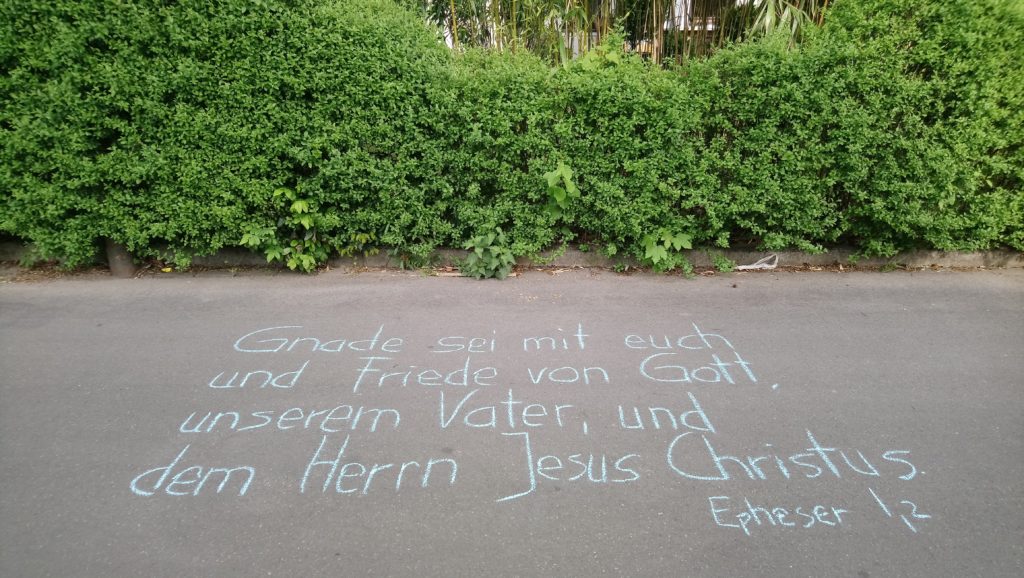 Gnade sei mit euch
und Friede von Gott,
unserem Vater, und
dem Herrn Jesus Christus.
Epheser 1,2